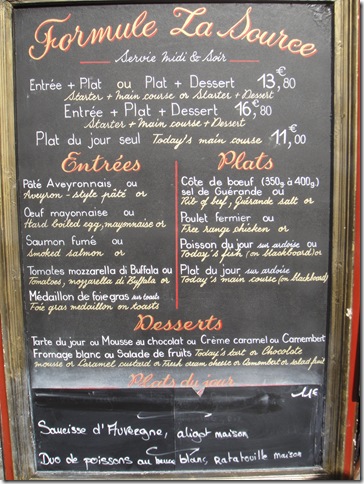 Formule La Source
Servie Midi & Soir
Entrée + Plat ou Plat + Dessert 13,€80
Starter + Main course or Starter + Dessert
Entrée + Plat + Dessert 16,€80
Starter + Main course + Dessert
Plat du jour seul Today's main course 11,€00
Entrées
Pâté Aveyronnais ou
Aveyron - style pâté or
Œuf mayonnaise ou
Hard boiled egg, mayonnaise or
Saumon fumé ou
Smoked salmon or
Tomates mozzarella di Buffala ou
Tomatoes, mozzarella di Buffala or
Médaillon de foie gras sur toasts
Foie gras medallion on toasts
Plats
Côte de bœuf (350g à 400g)
sel de Guérande ou
Rib of beef, Guérande salt or
Poulet fermier ou
Free range chicken or
Poisson du jour sur ardoise ou
Today's fish (on blackboard) or
Plat du jour sur ardoise
Today's main course (on blackboard)
Desserts
Tarte du jour ou Mousse au chocolat ou Crème caramel ou Camembert
Fromage blanc ou Salade de fruits Today's tart or Chocolate
mousse or Caramel custard or Fresh cream cheese or Camembert or salad fruit
Plats du jour
11€
Saucisse d'Auvergne, aligot maison
Duo de poissons au beurre blanc, Ratatouille maison